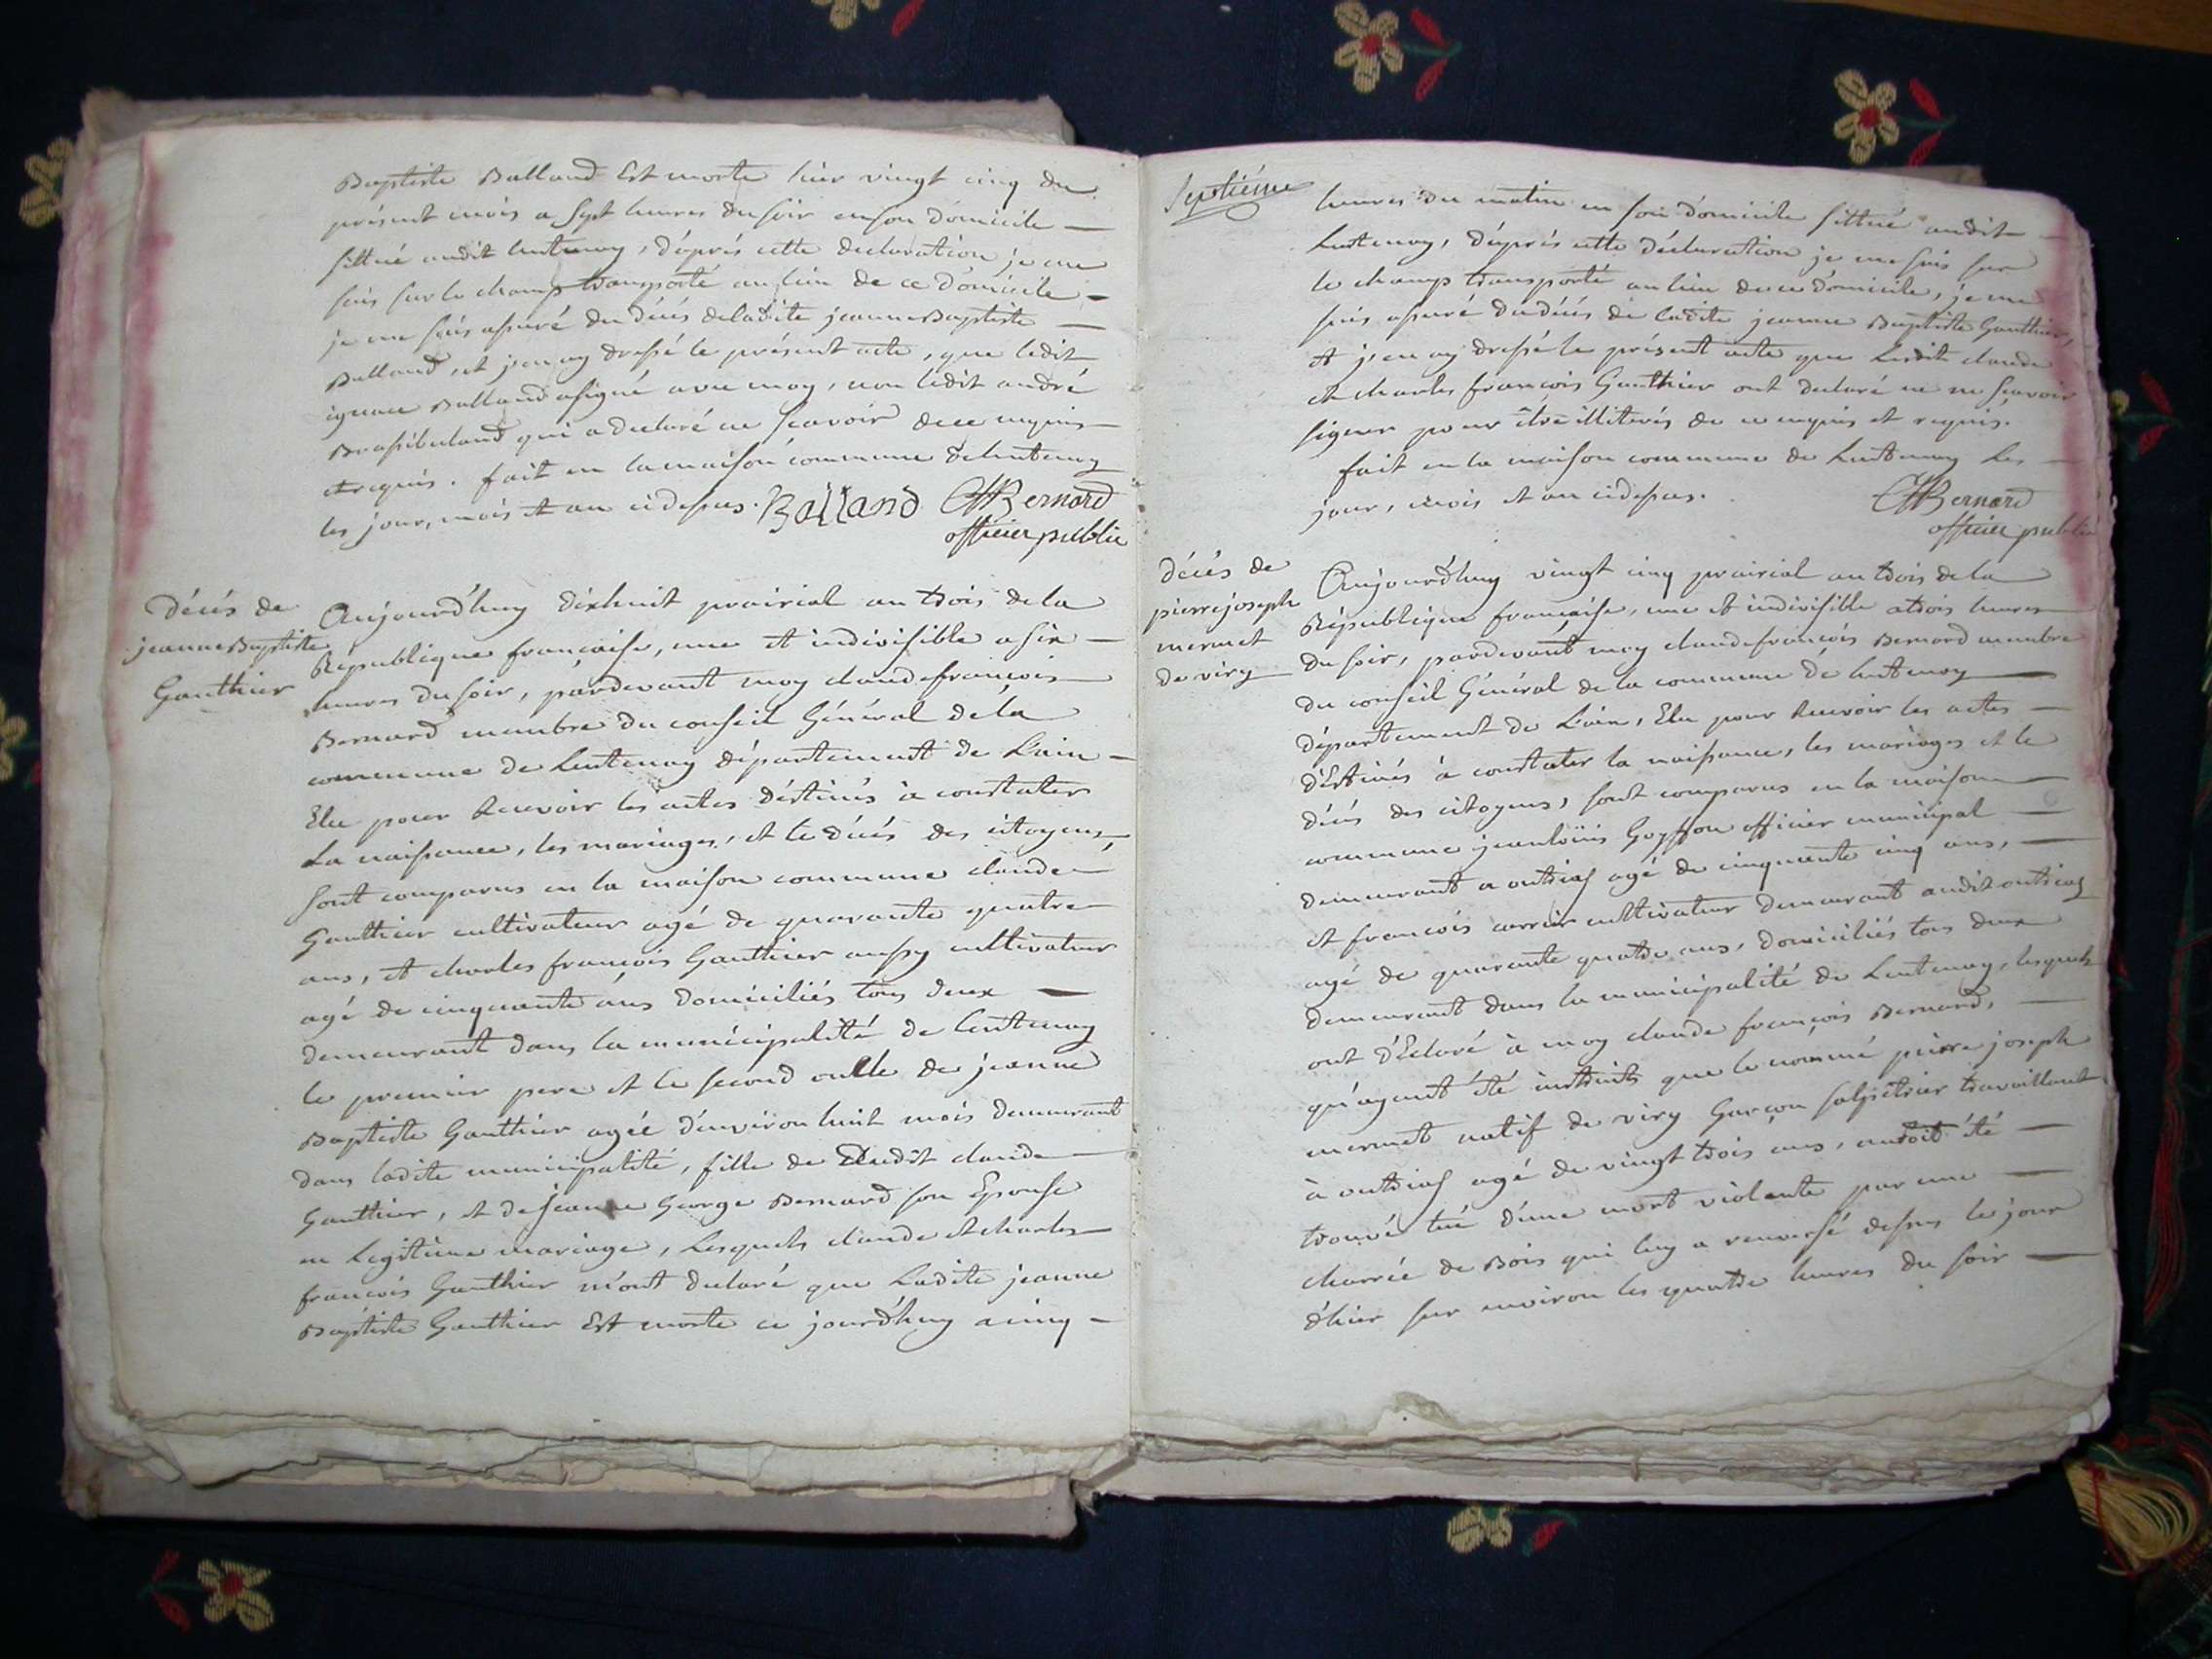 Baptiste Balland Est morte hier vingt cinq du
présent mois a sept heures du soir en son domicile
sittué audit lentenay, d'après cette declaration je me
suis sur le champ transporté au lieu de ce domicile
je me suis assuré du décés de ladite jeanne Baptiste
Balland, et j'en ay dressé le présent acte, que ledit
ignace Balland a signé avec moy, non ledit andré
qui a declaré ne scavoir de ce enquis
et requis. fait en la maison commune de lentenay
les jour, mois et an cidessus. Balland Bernard
officier public
décés de
jeanne Baptiste
Gauthier
Aujourd'huy dixhuit prairial an trois de la
République francaise, une et indivisible a six
heures du soir, pardevant moy claude francois
Bernard membre du conseil Général de la
commune de lentenay département de L'ain
Elu pour Recevoir les actes déstinés à constater
La naissance, les mariages, et le décés des citoyens,
sont comparus en la maison commune claude
Gauthier cultivateur agé de quarante quatre
ans, et charles francois Gauthier aussy cultivateur
agé de cinquante ans domiciliés tous deux
demeurant dans la municipalité de lentenay
le premier pere et le second oncle de jeanne
Baptiste Gauthier agée d'environ huit mois demeurant
dans ladite municipalité, fille de dudit claude
Gauthier, et de jeanne George Bernard son Epouse
en Legitime mariage, Lesquels claude et charles
francois Gauthier m'ont declaré que Ladite jeanne
Baptiste Gauthier Est morte ce jourd'huy a cinq
septiéme
heures du matin en son domicile sittué audit
Lentenay, d'après cette déclaration je me suis sur
le champ transporté au lieu de ce domicile, je me
suis assuré du décés de ladite jeanne Baptiste Gauthier,
et j'en ay dressé le présent acte que Lesdits claude
et charles francois Gauthier ont declaré ne scavoir
signer pour être illiterés de ce enquis et requis.
fait en la maison commune de Lentenay Les
jour, mois et an cidessus.
Bernard
officier public
décés de
pierre joseph
mermet
de viry
Aujourd'huy vingt cinq prairial an trois de la
République francaise, une et indivisible a trois heures
du soir, pardevant moy claude francois Bernard membre
du conseil Général de la commune de lentenay
département de L'ain, Elu pour Recevoir les actes
déstinés à constater la naissance, les mariages et le
décés des citoyens, sont comparus en la maison
commune jean loüis Goyffon officier municipal
demeurant a outriaz agé de cinquante cinq ans,
et francois carrier cultivateur demeurant audit outriaz
agé de quarante quatre ans, domiciliés tous deux
demeurant dans la municipalité de Lentenay, lesquels
ont déclaré à moy claude francois Bernard,
qu'ayent été instruits que le nommé pierre joseph
mermet natif de viry Garçon salpétrier travaillant
à outriaz agé de vingt trois ans, auroit été
trouvé tué d'une mort violente par une
charrée de Bois qui luy a renversé dessus le jour
d'hier sur environ les quatre heures du soir